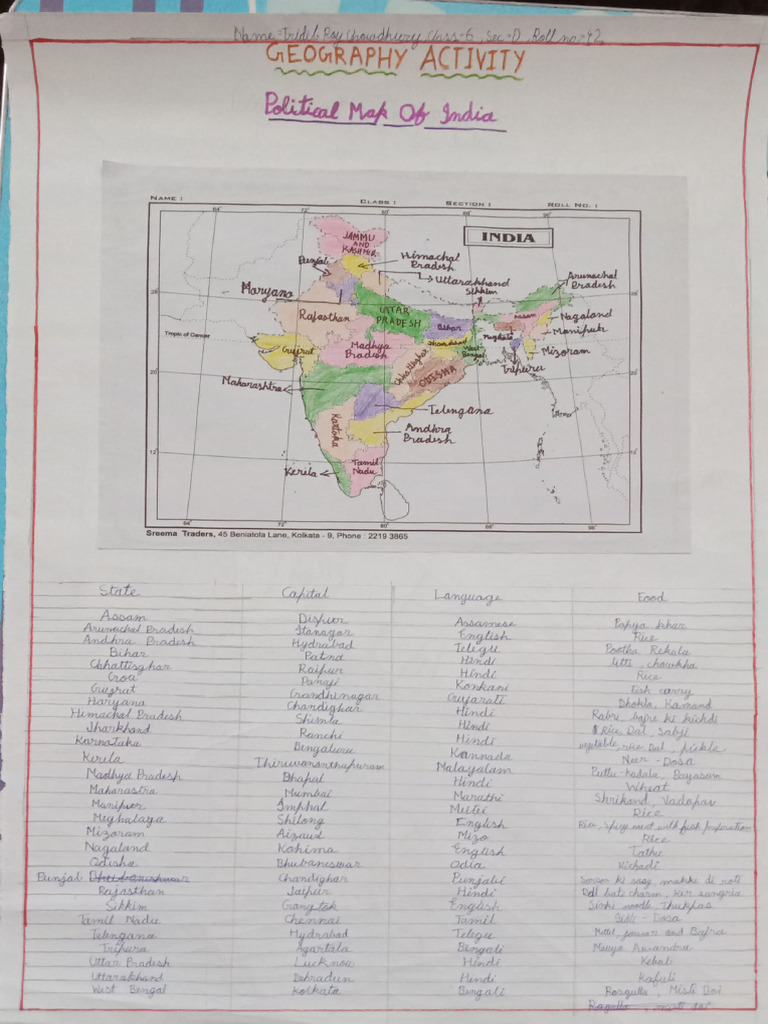 Name=Tridib Roy Chowdhury, Class=6, Sec=D, Roll no=42
GEOGRAPHY ACTIVITY
Political Map Of India
NAME : CLASS : SECTION : ROLL NO. :
64° 72° 80° 88° 96°
INDIA
JAMMU AND KASHMIR
Himachal Pradesh
Punjab
Uttarakhand
Sikkim
Arunachal Pradesh
Maryano
Rajasthan
UTTAR PRADESH
Bihar
Assam
Nagaland
Manipur
Tropic of Cancer
Gujrat
Madhya Pradesh
Jharkhand
West Bengal
Mizoram
Tripuru
Chhattisghar
ODISHA
Maharashtra
Telengana
Kartoka
Andhra Pradesh
Kerela
Tamil Nadu
Sreema Traders, 45 Beniatola Lane, Kolkata - 9, Phone : 2219 3865
State Capital Language Food
Assam Dispur Assamese Papya khar
Arunachal Pradesh Itanagar English Rice
Andhra Pradesh Hydrabad Telegu Pootha Rekala
Bihar Patna Hindi litti, chowkha
Chhattisghar Raipur Hindi Rice
Goa Panaji Konkani fish curry
Gujrat Grandhinagar Gujarati Dhokla, Kamand
Haryana Chandighar Hindi Rabri, bajre ki kichdi
Himachal Pradesh Shimla Hindi Rice Dal, Sabji
Jharkhand Ranchi Hindi vegetable, rice Dal, pickle
Karnataka Bengaluru Kannada Neer-Dosa
Kerela Thiruvananthapuram Malayalam Puttu-kadala, Payasam
Madhya Pradesh Bhopal Hindi Wheat
Maharastra Mumbai Marathi Shrikand, Vadapav
Manipur Imphal Meitei Rice
Meghalaya Shilong English Rice, spicy meat with fish preparation
Mizoram Aizawl Mizo Rice
Nagaland Kohima English Tathu
Odisha Bhubaneswar Odia Kichadi
Punjab Chandighar Punjabi Sarson ki saag makke di roti
Rajasthan Jaipur Hindi Dal bati churm, ker sangria
Sikkim Gangtok English Sinki noodle, Thukpas
Tamil Nadu Chennai Tamil Idli-Dosa
Telengana Hydrabad Telegu Millet, jawar and Bajra
Tripura Agartala Bengali Muuya Awandru
Uttar Pradesh Lucknow Hindi Kebab
Uttarakhand Dehradun Hindi Kafuli
West Bengal Kolkata Bengali Rosgulla, Misti Doi